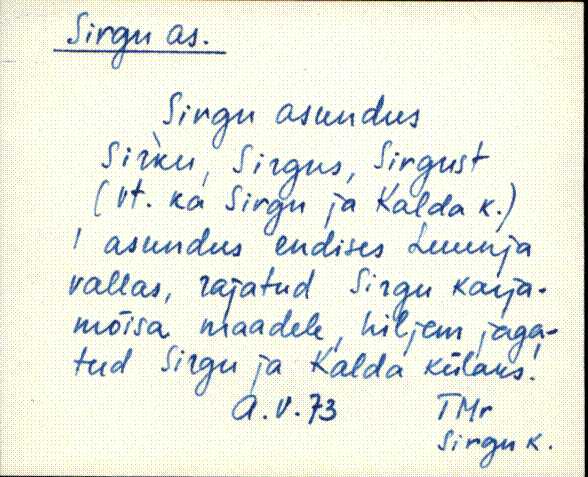 Sirgu as.
Sirgu asundus
Sir̀ku, Sirgus, Sirgust
(vt. ka Sirgu ja Kalda k.)
! asundus endises Luunja
vallas, rajatud Sirgu karja-
mõisa maadele, hiljem jaga-
tud Sirgu ja Kalda külaks!
A.V.73 TMr
Sirgu k.